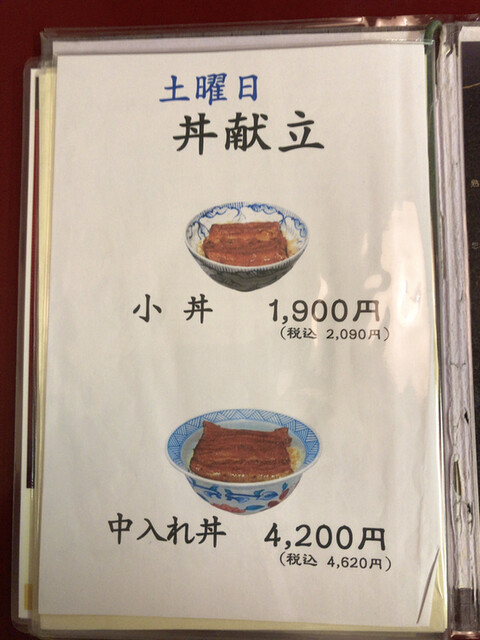 土曜日
丼献立
小丼 1,900円
(税込 2,090円)
中入れ丼 4,200円
(税込 4,620円)